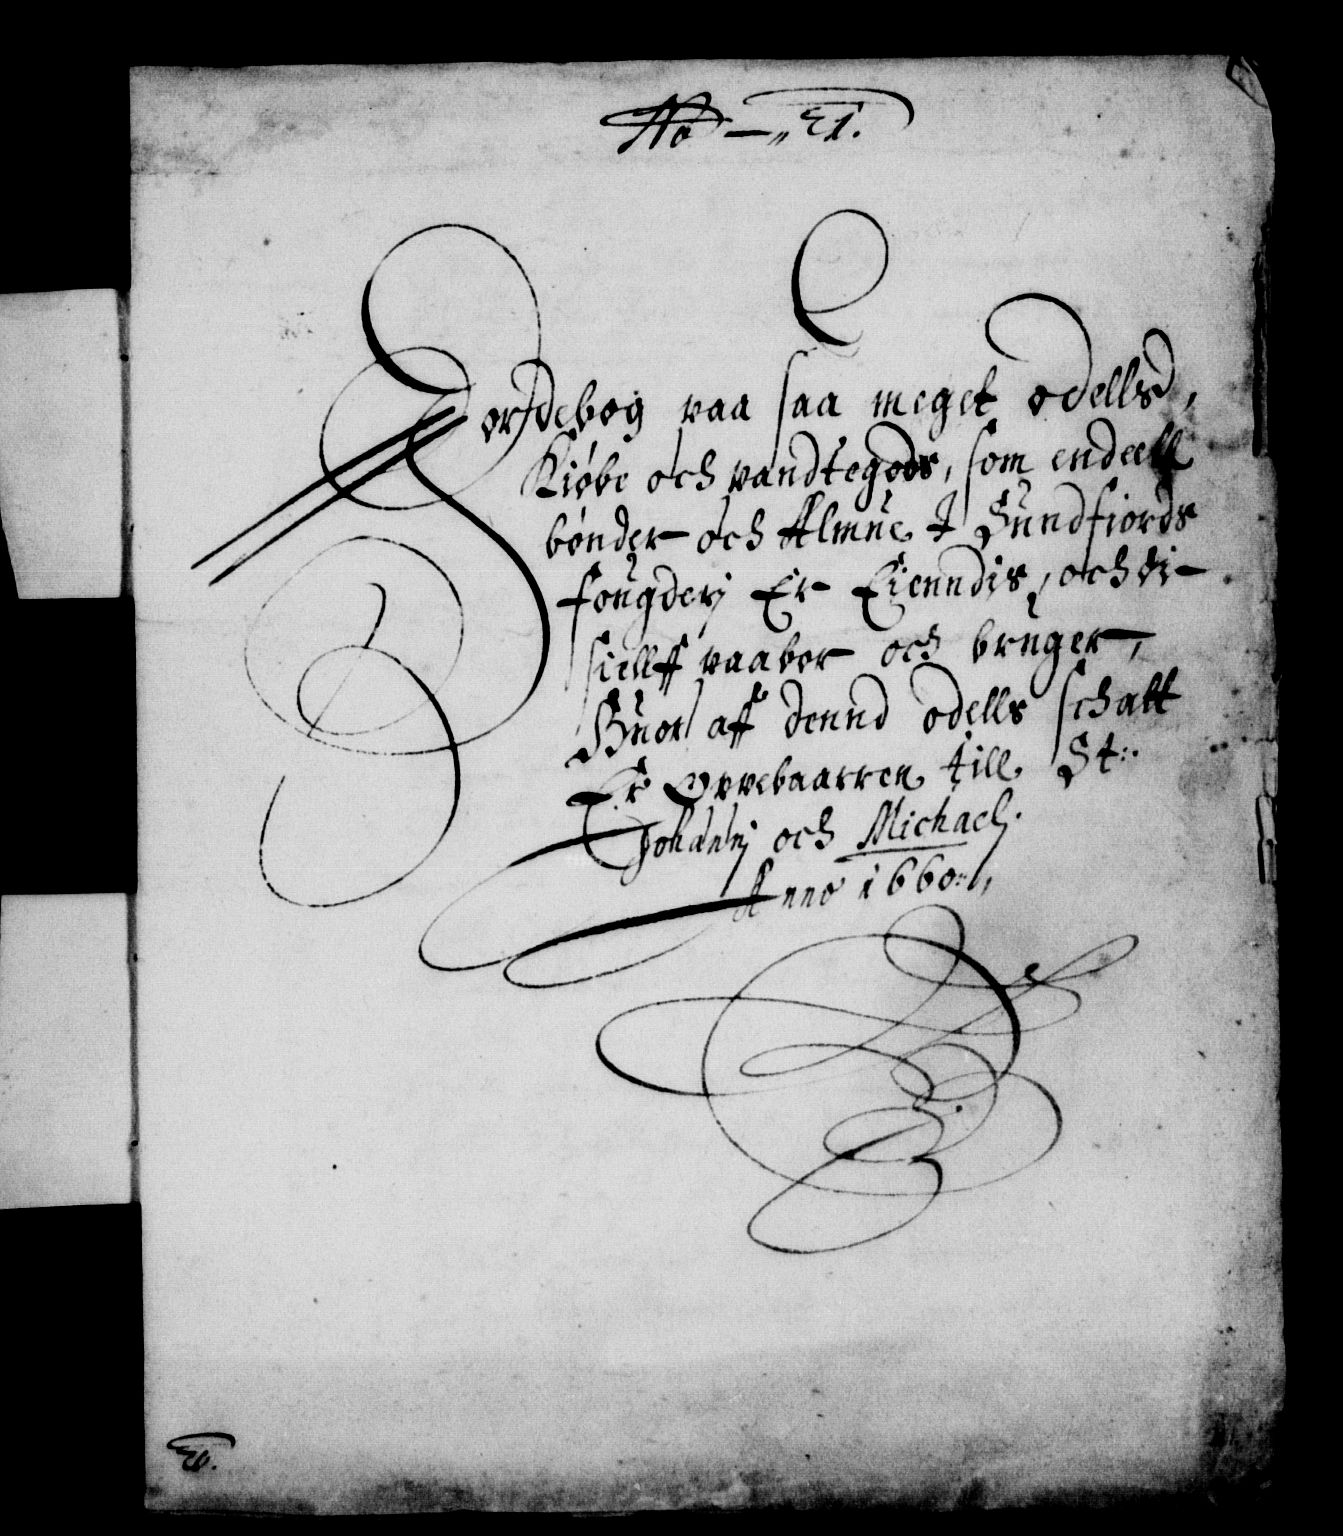 No - 21.
Jordebog paa saa meget odells,
Kiøbe och pandtegods, som endeell
bønder och Almue I Sundfiords
fougderj Er Eienndis, och di
sielff paaboer och bruger,
Huor aff dennd odells schatt
Er Oppebaarren till St:
Johannj och Michaelj.
Anno 1660:,